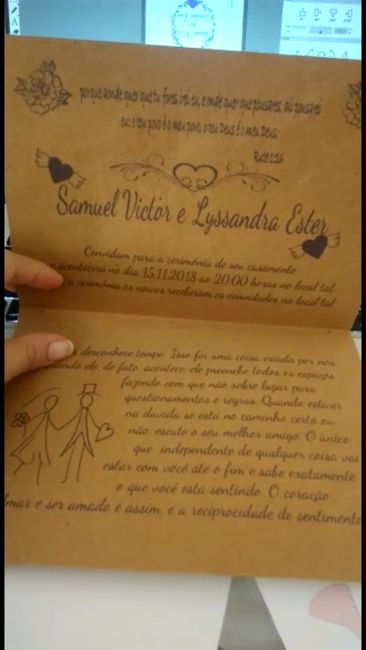 porque aonde quer que tu fores irei eu, e onde quer que pousares, ali pousarei
eu; o teu povo é o meu povo, o teu Deus é o meu Deus;
Rute 1:16
Samuel Victor e Lyssandra Ester
Convidam para a cerimônia de seu casamento
acontecerá no dia 15.11.2018 as 20:00 horas no local tal...
a cerimônia os noivos receberam os convidados no local tal
desconhece tempo. Isso foi uma coisa criada por nos.
ele, de fato, acontece, ele preenche todos os espaços
fazendo com que não sobre lugar para
questionamentos e regras. Quando estiver
na duvida se está no caminho certo ou
não, escute o seu melhor amigo. O único
que independente de qualquer coisa vai
estar com você ate o fim e sabe exatamente
o que você esta sentindo. O coração
amar e ser amado e assim, e a reciprocidade de sentimento